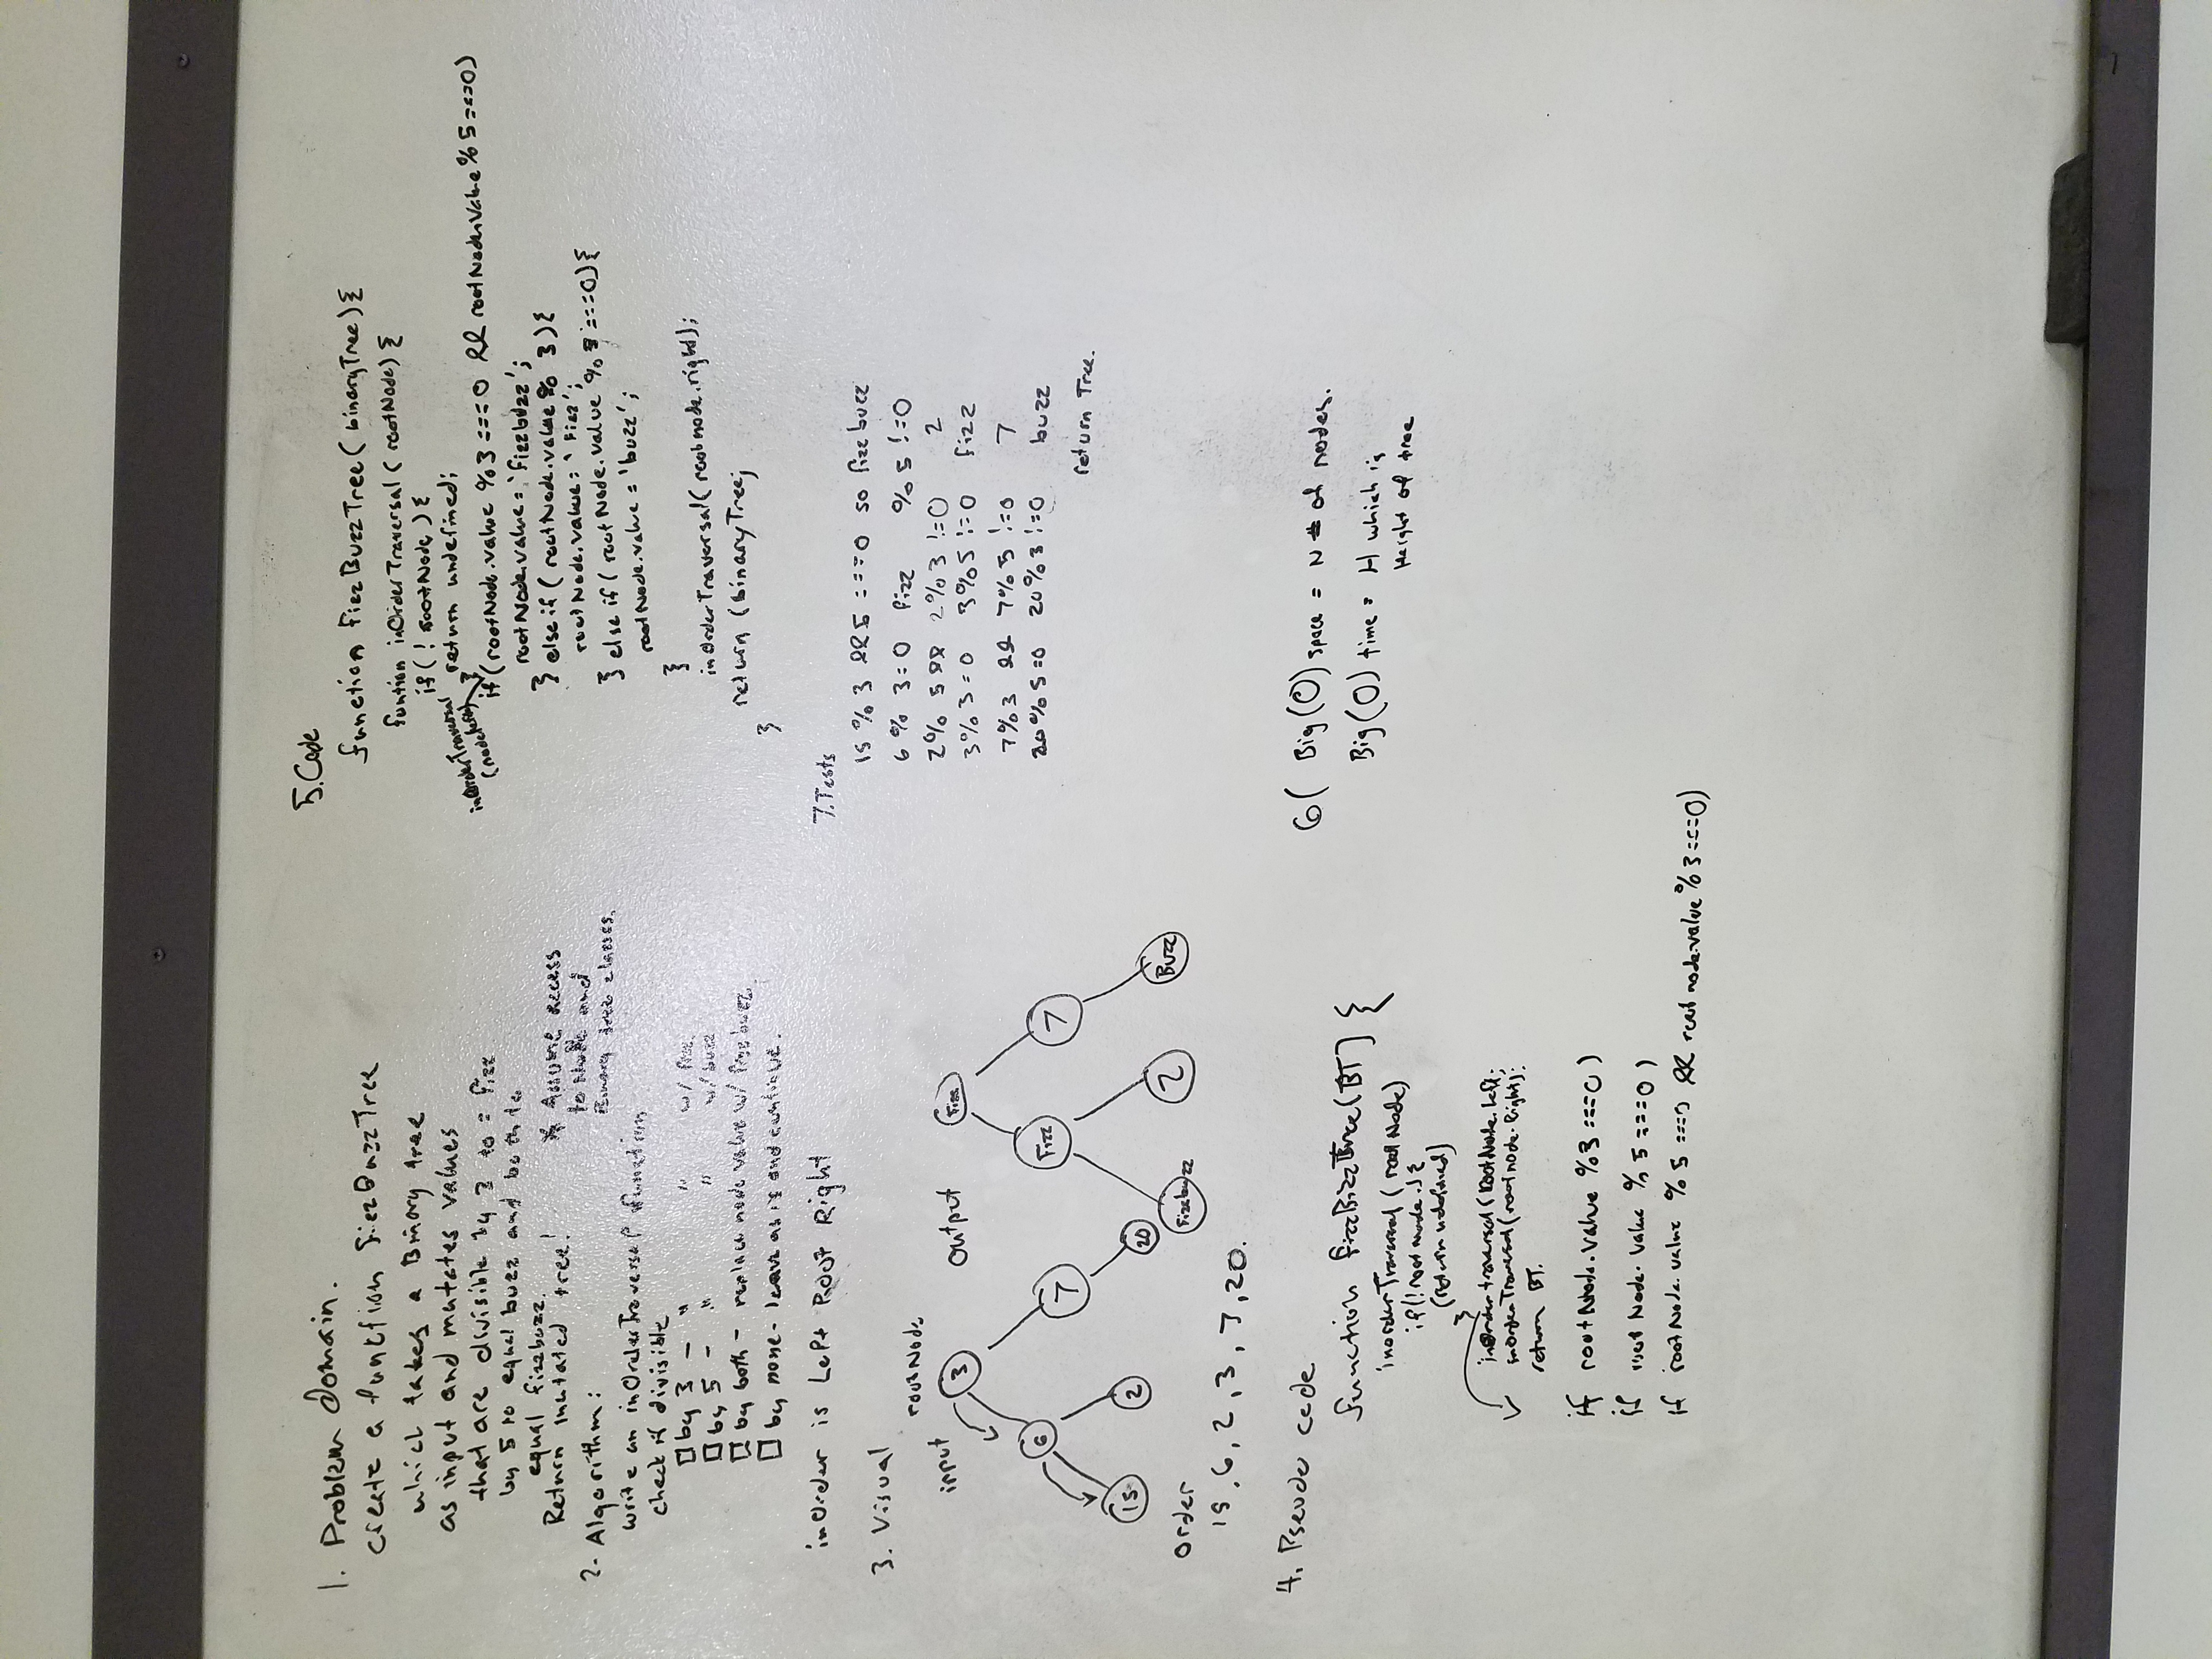 1. Problem domain.
create a function fizzBuzzTree
which takes a Binary tree
as input and mutates values
that are divisible by 3 to = fizz
by 5 to equal buzz and both to
equal fizzbuzz.
Return mutated tree!
* Assume access
to Node and
Binary tree classes.
2. Algorithm:
write an inOrderTraversal function
check if divisible
by 3 - " " w/ fizz
by 5 - " " w/ buzz
by both - replace node value w/ fizzbuzz
by none - leave as is and continue.
inOrder is Left Root Right
3. Visual
rootNode
input
3
6
7
15
2
20
output
Fizz
Fizz
7
Fizzbuzz
2
Buzz
Order
15, 6, 2, 3, 7, 20.
4. Pseudo code
function FizzBizzTree(BT) {
inorderTraversal (rootNode)
if(!rootnode.) {
(return undefined)
}
inOrder traversal (RootNode.left;
inOrderTraversal (rootnode.Right);
return BT.
if rootNode.value %3 ===0)
if rootNode.value %5 ===0)
if rootNode.value %5 ===0 && rootnode.value %3===0)
5. Code
function FizzBuzzTree( binaryTree){
funtion inOrderTraversal ( rootNode) {
if( ! rootNode ) {
return undefined;
}
inOrderTraversal
(node.left)
if (rootNode.value %3 ===0 && rootNode.value %5===0)
rootNode.value= 'fizzbuzz';
} else if ( rootNode.value % 3){
rootNode.value= 'Fizz';
} else if ( rootNode.value % 5 ===0){
rootNode.value = 'buzz';
}
inOrderTraversal( rootnode.right);
return (binaryTree;
}
7. Tests
15 % 3 && 5 ===0 so fizzbuzz
6 % 3=0 fizz %5 !=0
2% 5 && 2%3 !=0 2
3%3=0 3%5 !=0 fizz
7%3 && 7%5 !=0 7
20%5=0 20%3!=0 buzz
return Tree.
6( Big(O) space = N # of nodes.
Big(O) time = H which is
Height of tree